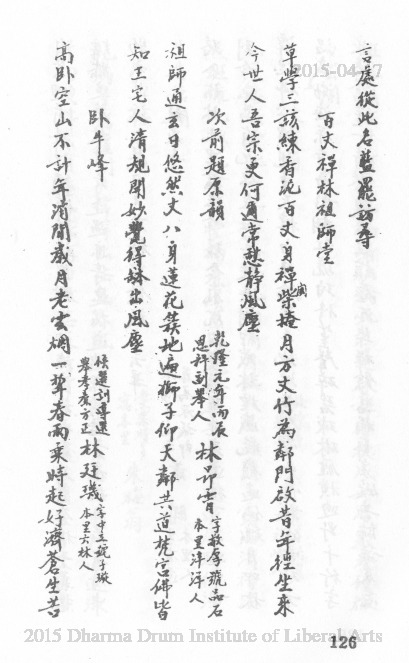 言處從此名藍飛訪尋
百丈禪林祖師堂
草學三該練看泥百丈身禪關柴掩月方丈竹為鄰門啟昔年徑坐來
今世人吾宗更何通常愁靜風塵
次前題原韻
乾隆元年丙辰恩科副舉人 林昂霄 字敘厚號品石本里洋洋人
祖師通玄日悠然丈八身蓮花簇地遍獅子仰天鄰共道梵宮佛皆
知王宅人清規聞妙覺得缽出風塵
臥牛峰
候選訓導選舉孝廉方正 林廷璣 字中玉號子璇本里六林人
高臥空山不計年消閒歲月老雲烟一犂春雨乘時起好濟蒼生苦
2015-04-17
2015 Dharma Drum Institute of Liberal Arts
126